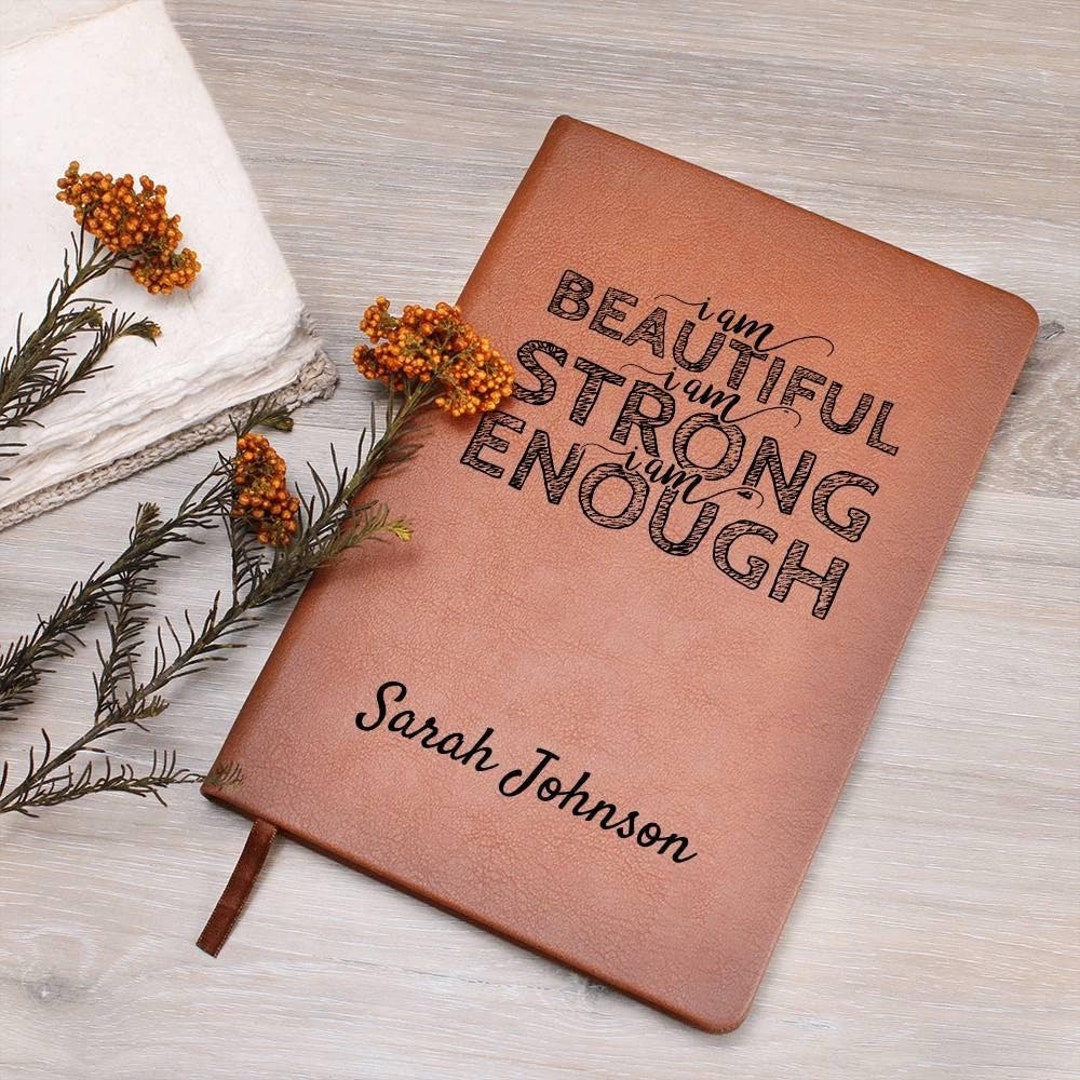 i am
BEAUTIFUL
i am
STRONG
i am
ENOUGH
Sarah Johnson